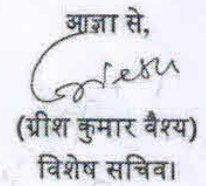 आज्ञा से,
(ग्रीश कुमार वैश्य)
विशेष सचिव।